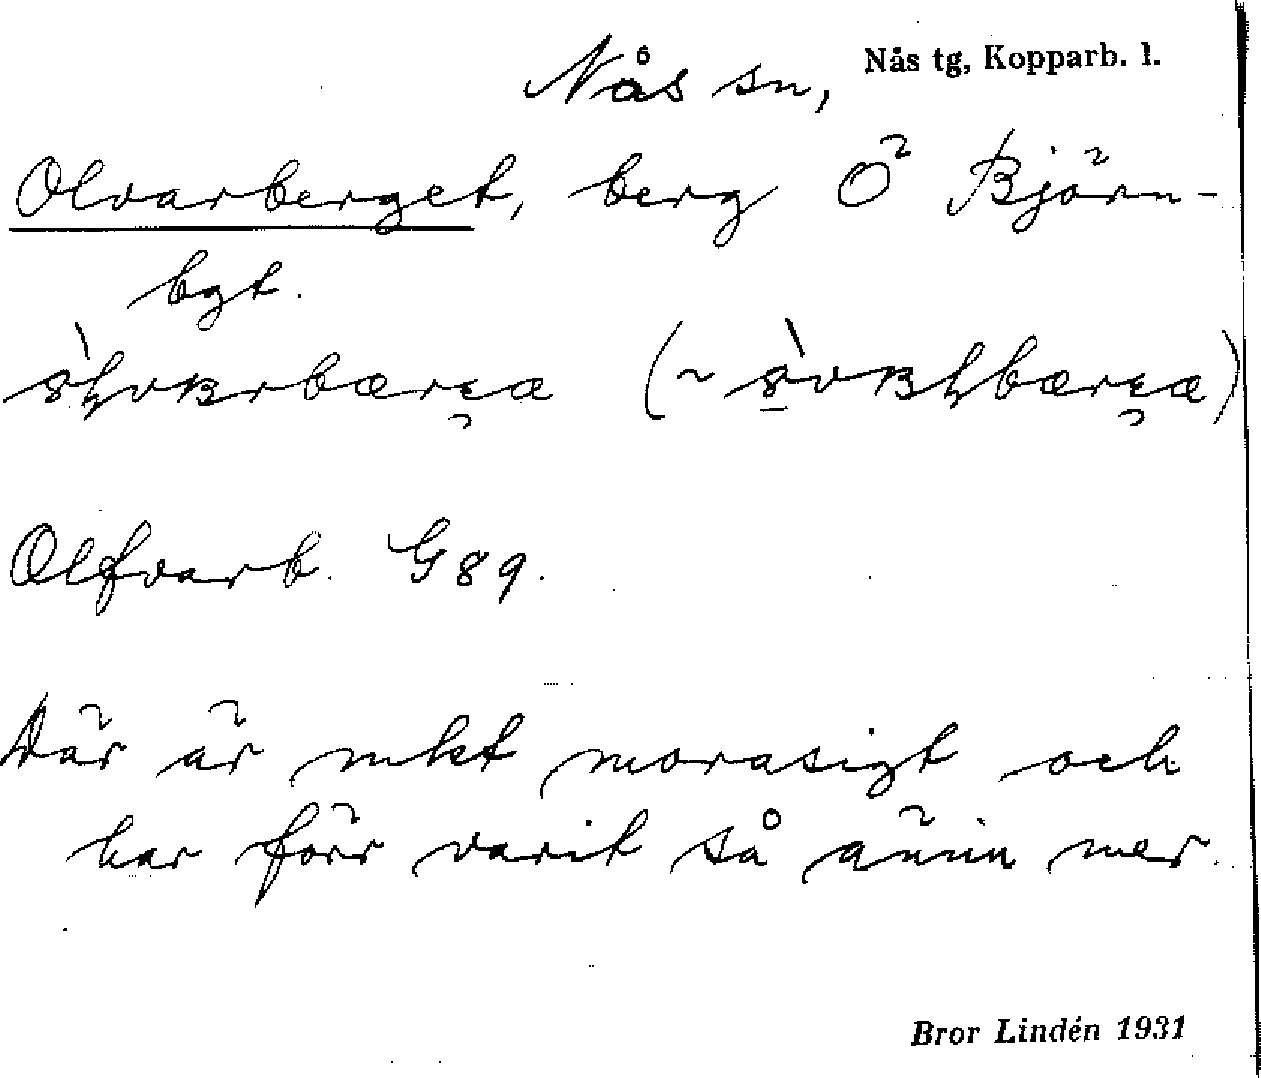 Nås sn, Nås tg, Kopparb. l.
Olvarberget, berg Ö Björn-
bgt.
Olfvarb. G 89.
Där är mkt morasigt och
har förr varit så ännu mer.
Bror Lindén 1931